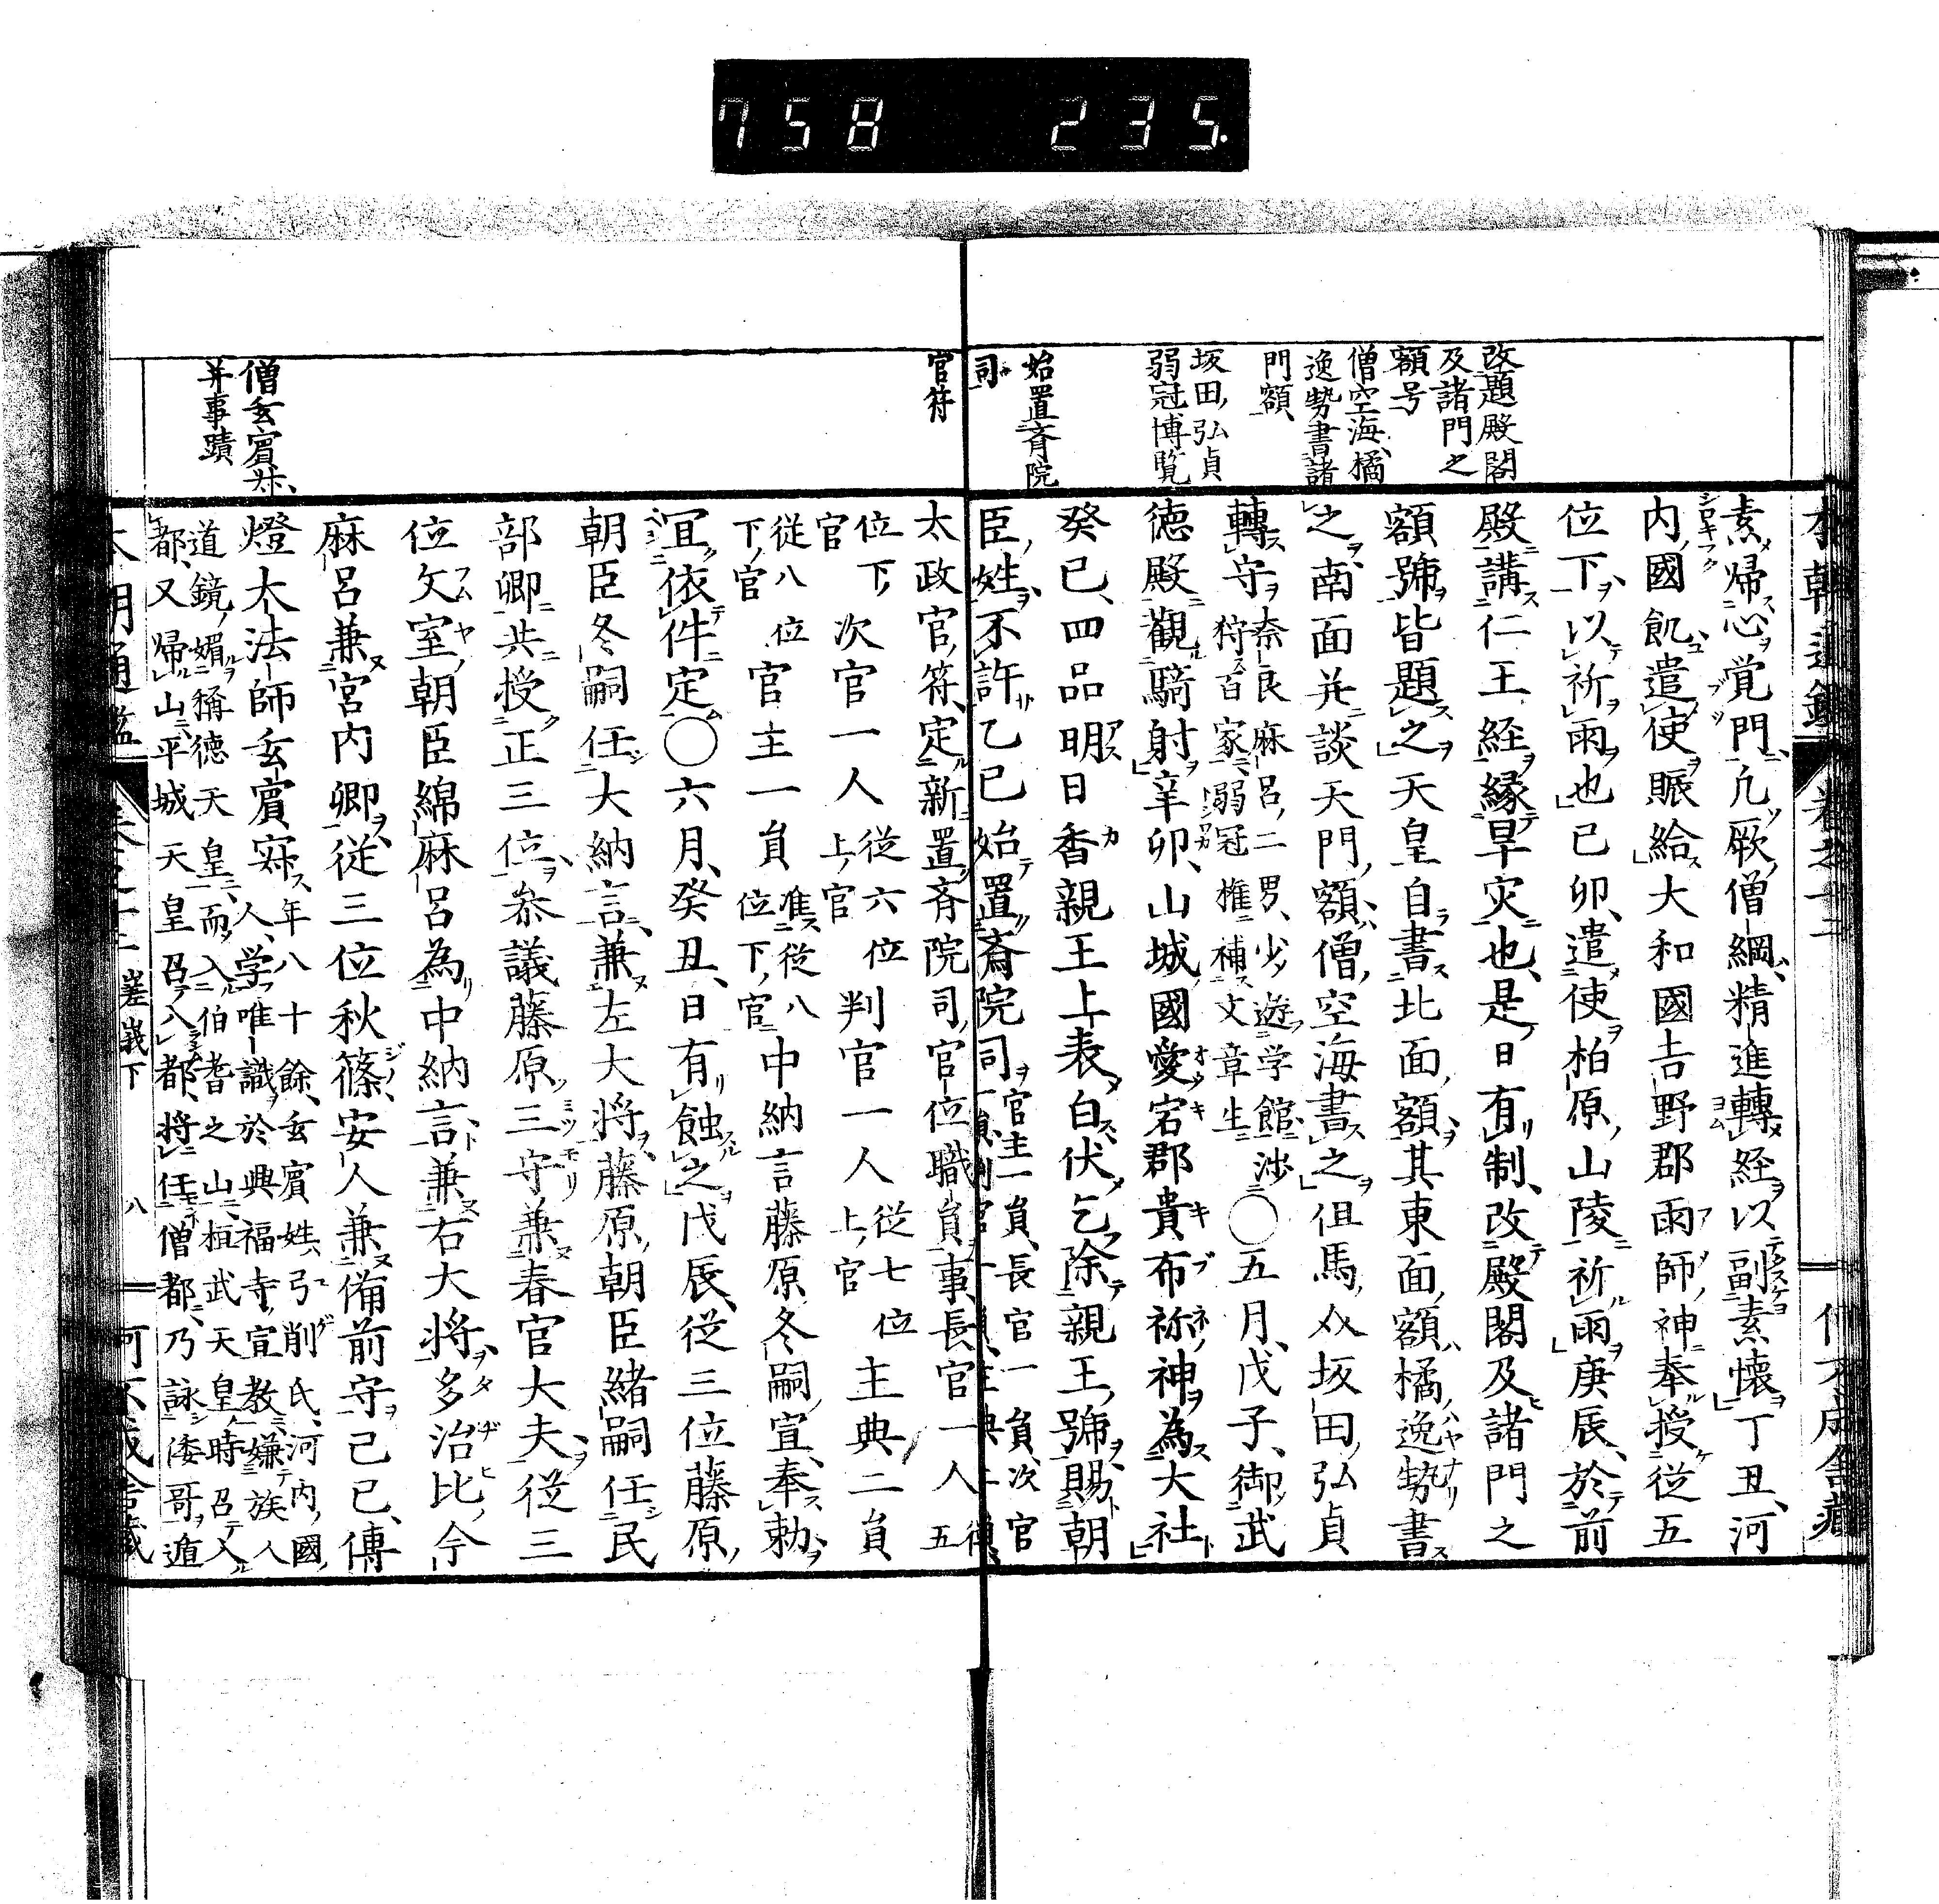 758 235.
改題殿閣
及諸門之
額号
僧空海、橘
逸勢書諸
門額、
坂田弘貞
弱冠博覧
始置斎院
司
素帰心覚門、凢厥僧綱、精進轉経以副素懐丁丑、河
内國飢遣使賑給大和國吉野郡雨師神奉授従五
位下、以祈雨也己卯、遣使柏原山陵祈雨庚辰、於前
殿講仁王経縁旱灾也、是日有制、改殿閣及諸門之
額號皆題之天皇自書北面額其東面額橘逸勢書
之、南面并談天門額、僧空海書之但馬介坂田弘貞
轉守奈良麻呂二男、少遊学館、渉
狩百家弱冠権補文章生〇五月、戊子、御武
徳殿觀騎射辛卯、山城國愛宕郡貴布祢神為大社
癸巳、四品明日香親王上表白伏乞除親王號賜朝
臣姓、不許乙巳始置斎院司官主一員、長官一員、次官
官符
僧玄賓𡪹、
并事蹟
太政官符、定新置斉院司官位職員事、長官一人五
位下官 次官一人従六位上官 判官一人従七位上官 主典二員
従八位下官 官主一員准従八位下官 中納言藤原冬嗣宣、奉勅
宜依件定〇六月、癸丑、日有蝕之戊辰、従三位藤原
朝臣冬嗣任大納言、兼左大将藤原朝臣緒嗣任民
部卿共授正三位、参議藤原三守兼春官大夫、従三
位文室朝臣綿麻呂為中納言、兼右大将、多治比今
麻呂兼宮内卿、従三位秋篠安人兼備前守己巳、傳
燈大法師玄賓𡪹年八十餘、玄賓姓弓削氏、河内國
人、学唯識於興福寺、宣教嫌族人
道鏡媚稱徳天皇、而入伯耆之山、桓武天皇時召入
都、又歸山、平城天皇召入都、将任僧都、乃詠倭哥遁
嵯峨下
八